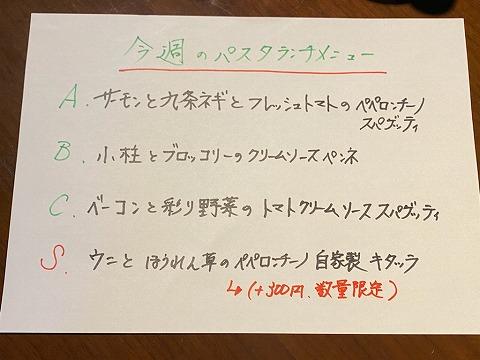 今週のパスタランチメニュー
A. サーモンと九条ネギとフレッシュトマトのペペロンチーノ
スパゲッティ
B. 小柱とブロッコリーのクリームソースペンネ
C. ベーコンと彩り野菜のトマトクリームソース スパゲッティ
S. ウニとほうれん草のペペロンチーノ 自家製 キタッラ
↳(+300円、数量限定)